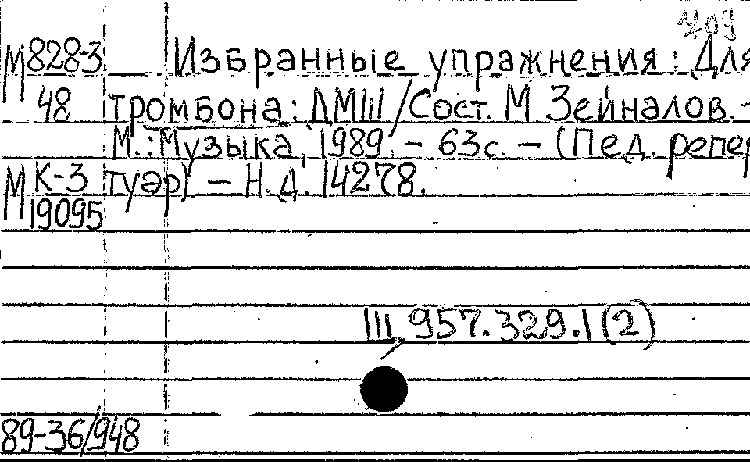 409
М 828-3 Избранные упражнения: Для
48 тромбона: ДМШ / Сост. М Зейналов. -
М.: Музыка, 1989. - 63с. - (Пед. репер
М К-3 туар) - Н.д. 14278.
19095
Ш 957.329.1(2)
89-36/948